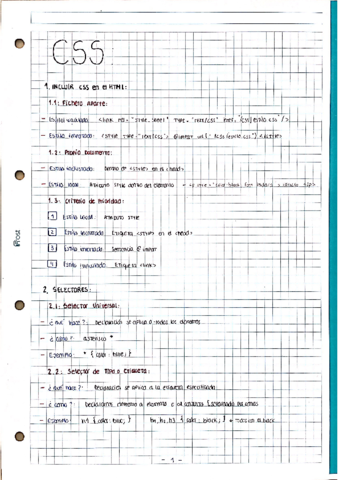 CSS
1. INCLUIR CSS en el HTML:
1.1: Fichero Aparte:
- Estilo vinculado: <link rel="style sheet" type="text/css" href="css/estilo.css"/>
- Estilo importado: <style type="text/css"> @import url("css/estilo.css") </style>
1.2: Propio Documento:
- Estilo incrustado: dentro de <style> en el <head>
- Estilo local: Atributo style dentro del elemento
1.3: Criterio de Prioridad:
1 Estilo Local: Atributo style
2 Estilo incrustado: Etiqueta <style> en el <head>
3 Estilo importado: Sentencia @import
4 Estilo vinculado: Etiqueta <link>
2. SELECTORES:
2.1: Selector Universal:
- ¿Qué hace?: Declaración se aplica a todos los elementos
- ¿Cómo?: asterisco *
- Ejemplo: * { color: blue; }
2.2: Selector de Tipo o Etiqueta:
- ¿Qué hace?: Declaración se aplica a la etiqueta especificada
- ¿Cómo?:
- Ejemplo: h1 { color: blue; } h1, h2, h3 { color: black; }
- 1 -